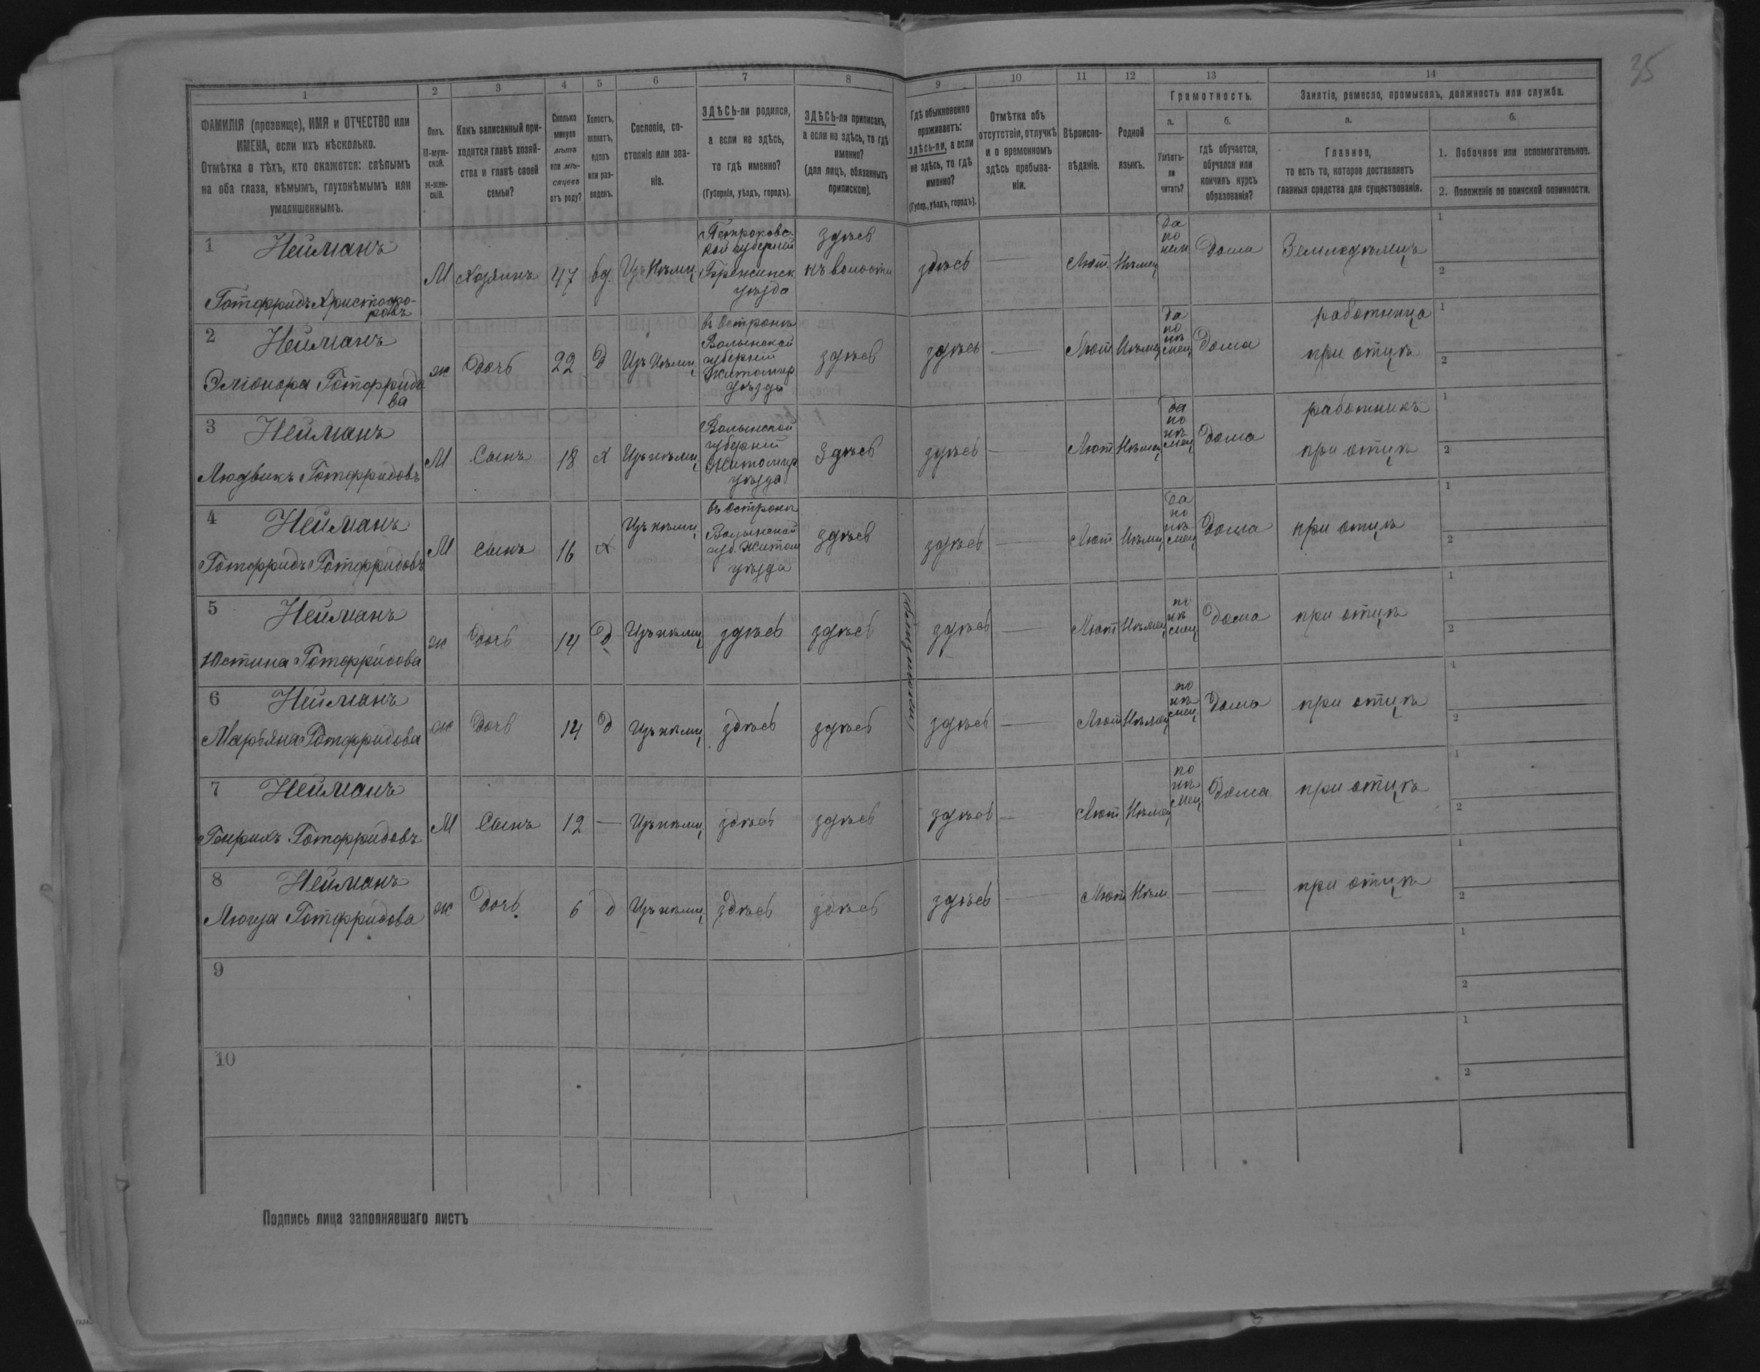 35
1 2 3 4 5 6 7 8 9 10 11 12 13 14
ФАМИЛІЯ (прозвище), ИМЯ и ОТЧЕСТВО или
ИМЕНА, если ихъ нѣсколько.
Отмѣтка о тѣхъ, кто окажется: слѣпымъ
на оба глаза, нѣмымъ, глухонѣмымъ или
умалишеннымъ.
Полъ.
М-муж-
ской.
ж-жен-
скій.
Какъ записанный при-
ходится главѣ хозяй-
ства и главѣ своей
семьи?
Сколько
минуло
лѣтъ
или мѣ-
сяцевъ
отъ роду?
Холостъ,
женатъ,
вдовъ
или раз-
веденъ.
Сословіе, со-
стояніе или зва-
ніе.
ЗДѢСЬ-ли родился,
а если не здѣсь,
то гдѣ именно?
(Губернія, уѣздъ, городъ).
ЗДѢСЬ-ли приписанъ,
а если не здѣсь, то гдѣ
именно?
(для лицъ, обязанныхъ
припискою).
Гдѣ обыкновенно
проживаетъ:
здѣсь-ли, а если
не здѣсь, то гдѣ
именно?
(Губер., уѣздъ, городъ).
Отмѣтка объ
отсутствіи, отлучкѣ
и о временномъ
здѣсь пребыва-
ніи.
Вѣроиспо-
вѣданіе.
Родной
языкъ.
Грамотность.
а.
Умѣетъ-
ли
читать?
б.
гдѣ обучается,
обучался или
кончилъ курсъ
образованія?
Занятіе, ремесло, промыселъ, должность или служба.
а.
Главное,
то есть то, которое доставляетъ
главныя средства для существованія.
б.
1. Побочное или вспомогательное.
2. Положеніе по воинской повинности.
1 Нейманъ
Готфридъ Христофо-
ровъ
М Хозяинъ 47 вд Изъ Нѣмц
Петроковс-
кой губерніи
Брезинск
уѣзда
здѣсь
въ волости
здѣсь — Лют. Нѣмец
да
по
нем
Дома Земледѣлецъ
1
2
2 Нейманъ
Эліонора Готфридо
ва
ж Дочь 22 д Изъ Нѣмц
въ Остроны
Волынской
губерніи
Житомир
уѣзда
здѣсь здѣсь — Лют Нѣмец
да
по
нѣ
мец
Дома
работница
при отцѣ
1
2
3 Нейманъ
Людвикъ Готфридовъ
М Сынъ 18 х Изъ нѣмц
Волынской
губерній
Житомир
уѣзда
Здѣсь здѣсь — Лют Нѣмец
да
по
нѣ
мец
Дома
работникъ
при отцѣ
1
2
4 Нейманъ
Готфридъ Готфридовъ
М Сынъ 16 х Изъ нѣмц
въ Остроны
Волынской
губ. Житом
уѣзда
здѣсь здѣсь — Лют Нѣмец
да
по
нѣ
мец
Дома при отцѣ
1
2
5 Нейманъ
Юстина Готфридова
ж Дочь 14 д Изъ нѣмц здѣсь здѣсь здѣсь — Лют Нѣмец
по
нѣ
мец
Дома при отцѣ
1
2
6 Нейманъ
Марьяна Готфридова
ж Дочь 14 д Изъ нѣмц здѣсь здѣсь здѣсь — Лют Нѣмец
по
нѣ
мец
Дома при отцѣ
1
2
7 Нейманъ
Генрихъ Готфридовъ
М Сынъ 12 — Изъ нѣмц здѣсь здѣсь здѣсь — Лют Нѣмец
по
нѣ
мец
Дома при отцѣ
1
2
8 Нейманъ
Люиза Готфридова
ж Дочь 6 д Изъ нѣмц здѣсь здѣсь здѣсь — Лют Нѣм — — при отцѣ
1
2
9
1
2
10
1
2
Подпись лица заполнявшаго листъ